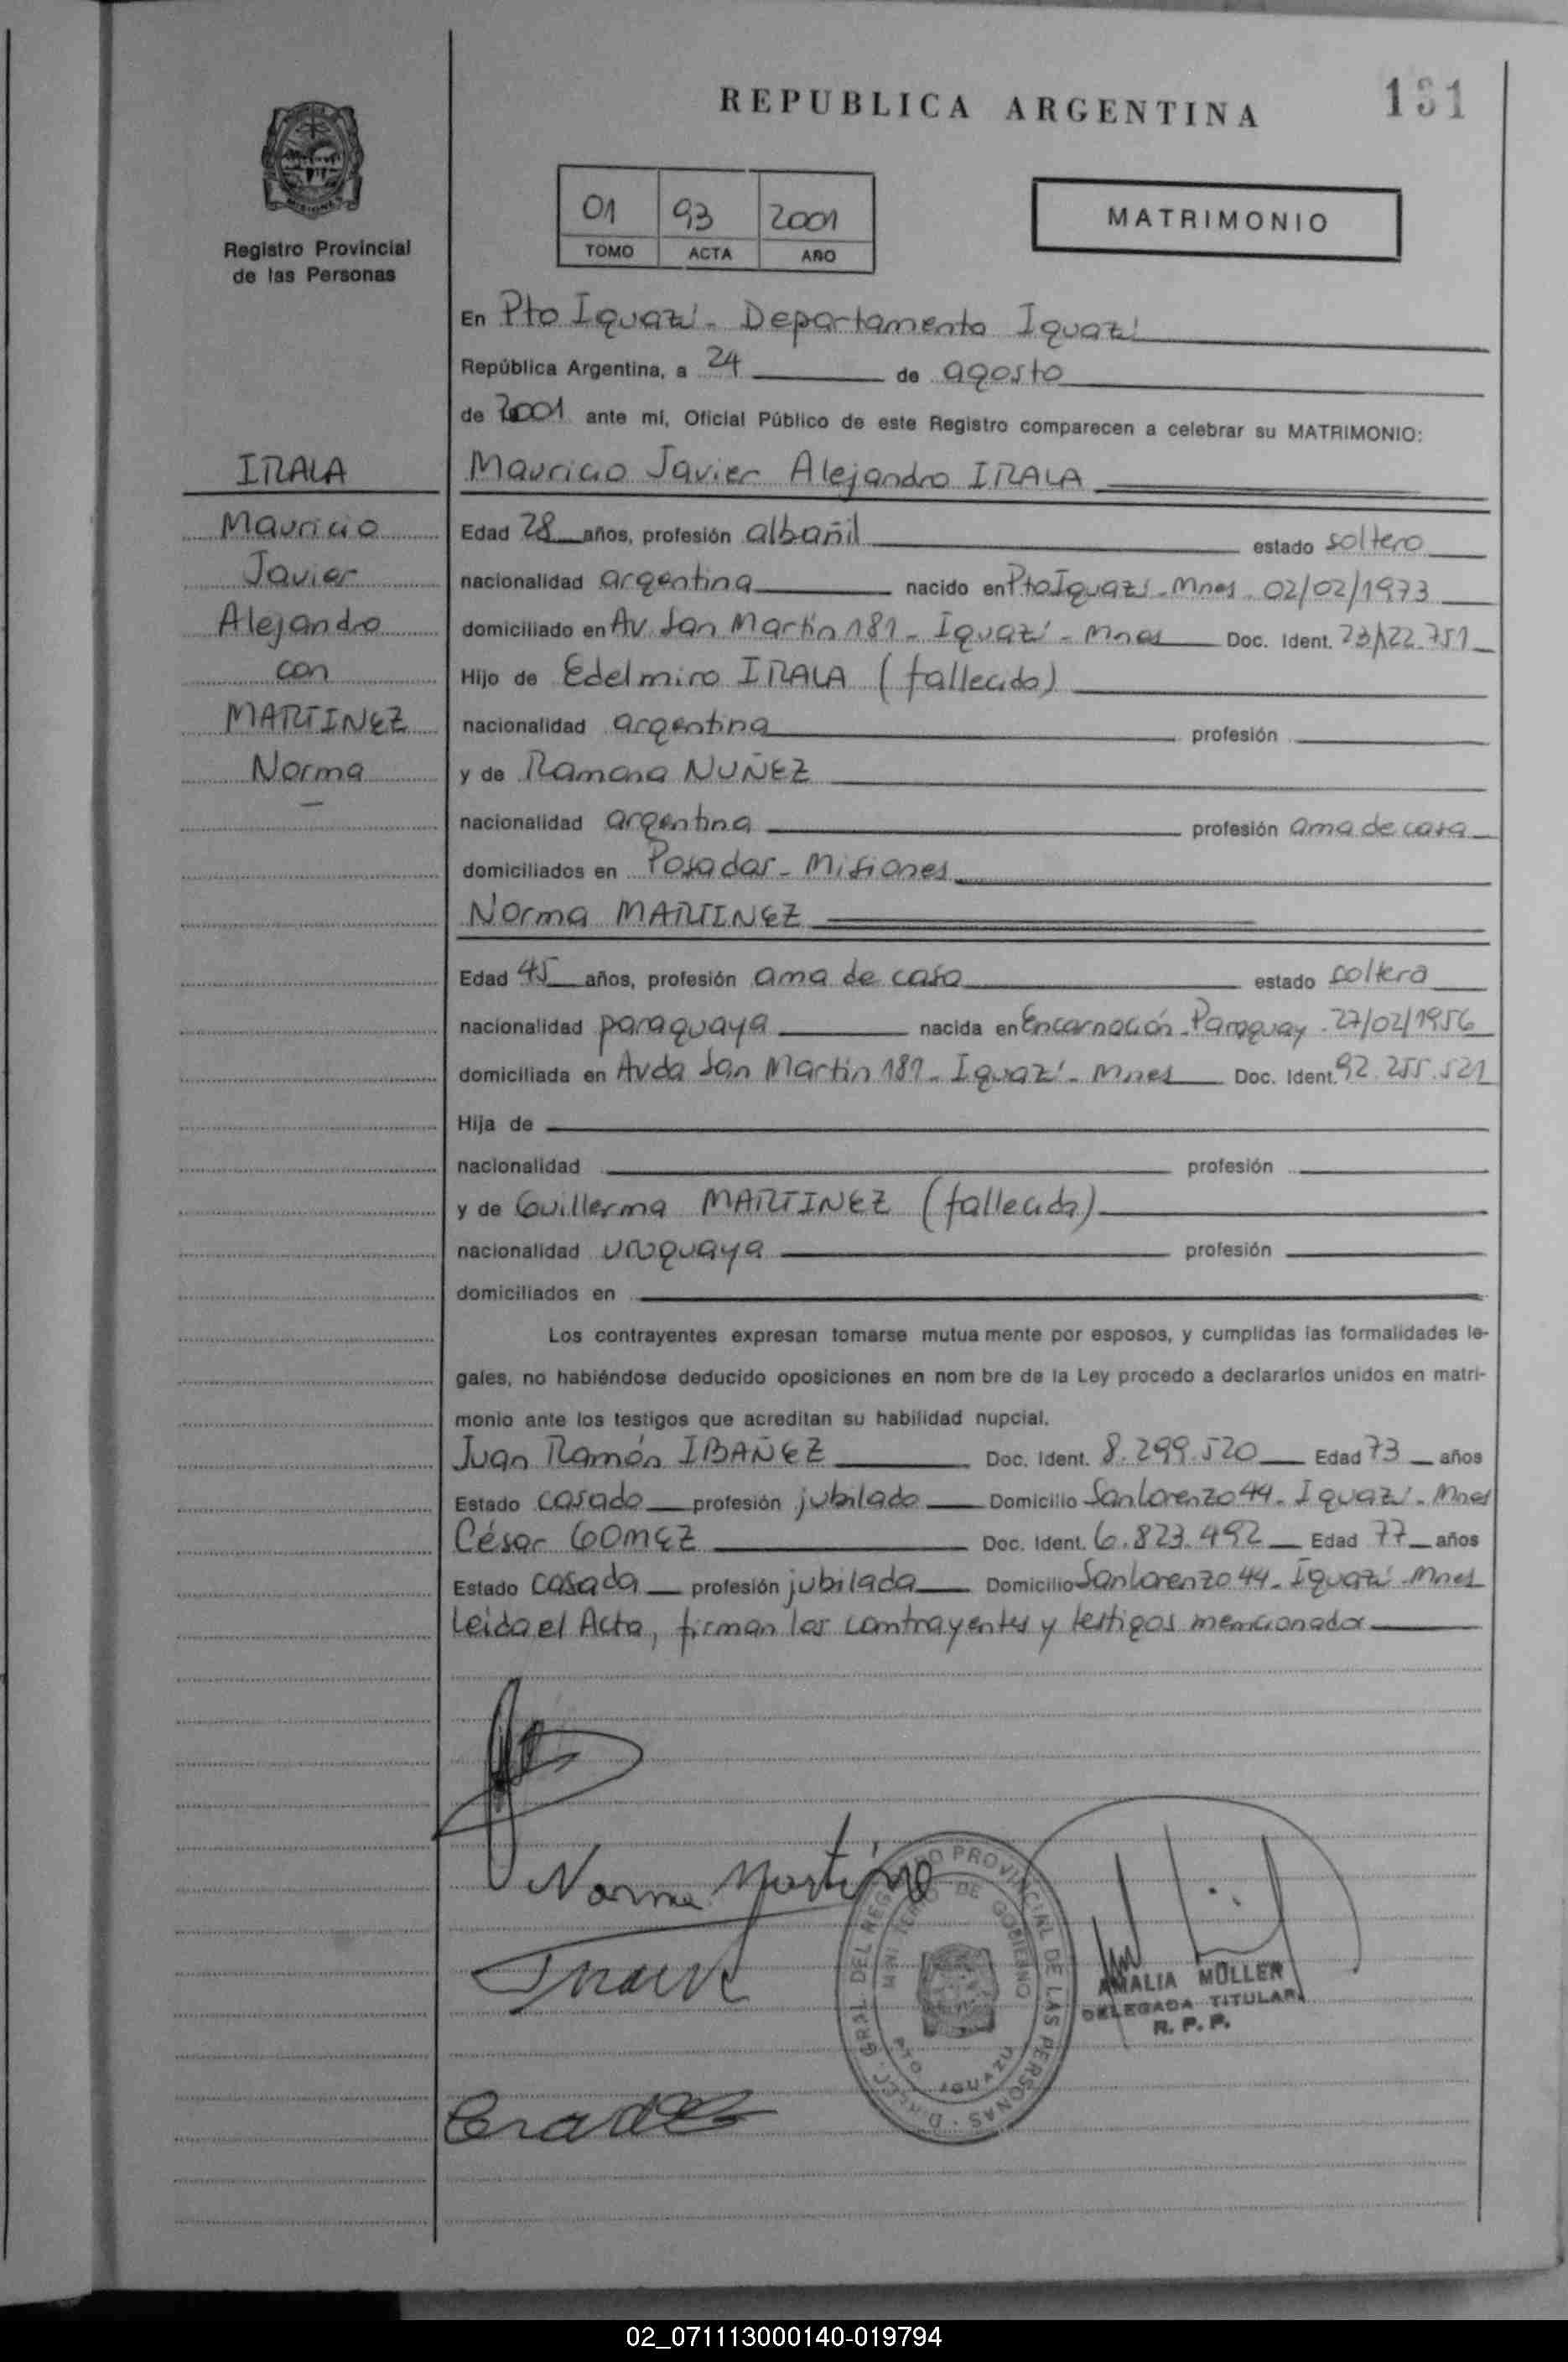 REPUBLICA ARGENTINA
131
Registro Provincial
de las Personas
01 93 2001
TOMO ACTA AÑO
MATRIMONIO
En Pto Iguazú - Departamento Iguazú
República Argentina, a 24 de agosto
de 2001 ante mí, Oficial Público de este Registro comparecen a celebrar su MATRIMONIO:
IRALA
Mauricio
Javier
Alejandro
con
MARTINEZ
Norma
Mauricio Javier Alejandro IRALA
Edad 28 años, profesión albañil estado soltero
nacionalidad argentina nacido en Pto Iguazú - Mnes. 02/02/1973
domiciliado en Av. San Martín 181 - Iguazú - Mnes Doc. Ident. 23.122.751
Hijo de Edelmiro IRALA (fallecido)
nacionalidad argentina profesión
y de Ramona NUÑEZ
nacionalidad argentina profesión ama de casa
domiciliados en Posadas - Misiones
Norma MARTINEZ
Edad 45 años, profesión ama de casa estado soltera
nacionalidad paraguaya nacida en Encarnación - Paraguay . 27/02/1956
domiciliada en Avda San Martín 181 - Iguazú - Mnes Doc. Ident. 92.255.521
Hija de
nacionalidad profesión
y de Guillerma MARTINEZ (fallecida)
nacionalidad uruguaya profesión
domiciliados en
Los contrayentes expresan tomarse mutua mente por esposos, y cumplidas las formalidades le-
gales, no habiéndose deducido oposiciones en nom bre de la Ley procedo a declararlos unidos en matri-
monio ante los testigos que acreditan su habilidad nupcial.
Juan Ramón IBAÑEZ Doc. Ident. 8.299.520 Edad 73 años
Estado casado profesión jubilado Domicilio San Lorenzo 44 - Iguazú - Mnes
César GOMEZ Doc. Ident. 6.823.492 Edad 77 años
Estado casada profesión jubilada Domicilio San Lorenzo 44 - Iguazú - Mnes
Leída el Acta, firman los contrayentes y testigos mencionados
Norma Martínez
DIREC. GRAL. DEL REGISTRO PROVINCIAL DE LAS PERSONAS
MINISTERIO DE GOBIERNO
PTO IGUAZU
AMALIA MÜLLER
DELEGADA TITULAR
R. P. P.
02_071113000140-019794